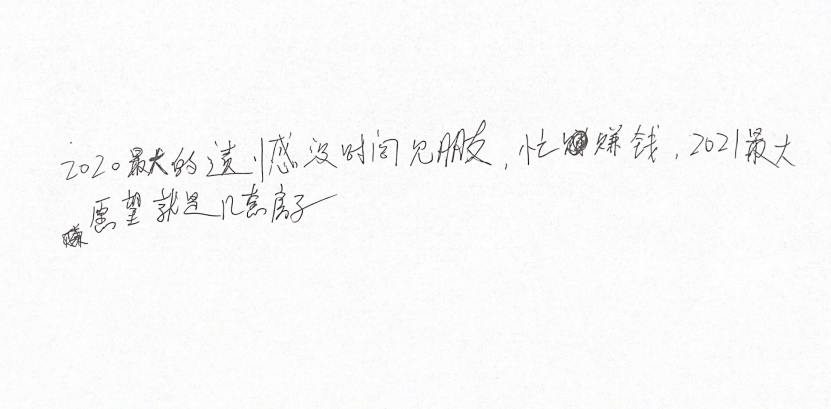 2020最大的遗憾没时间见朋友，忙赚钱，2021最大
愿望就是几套房子